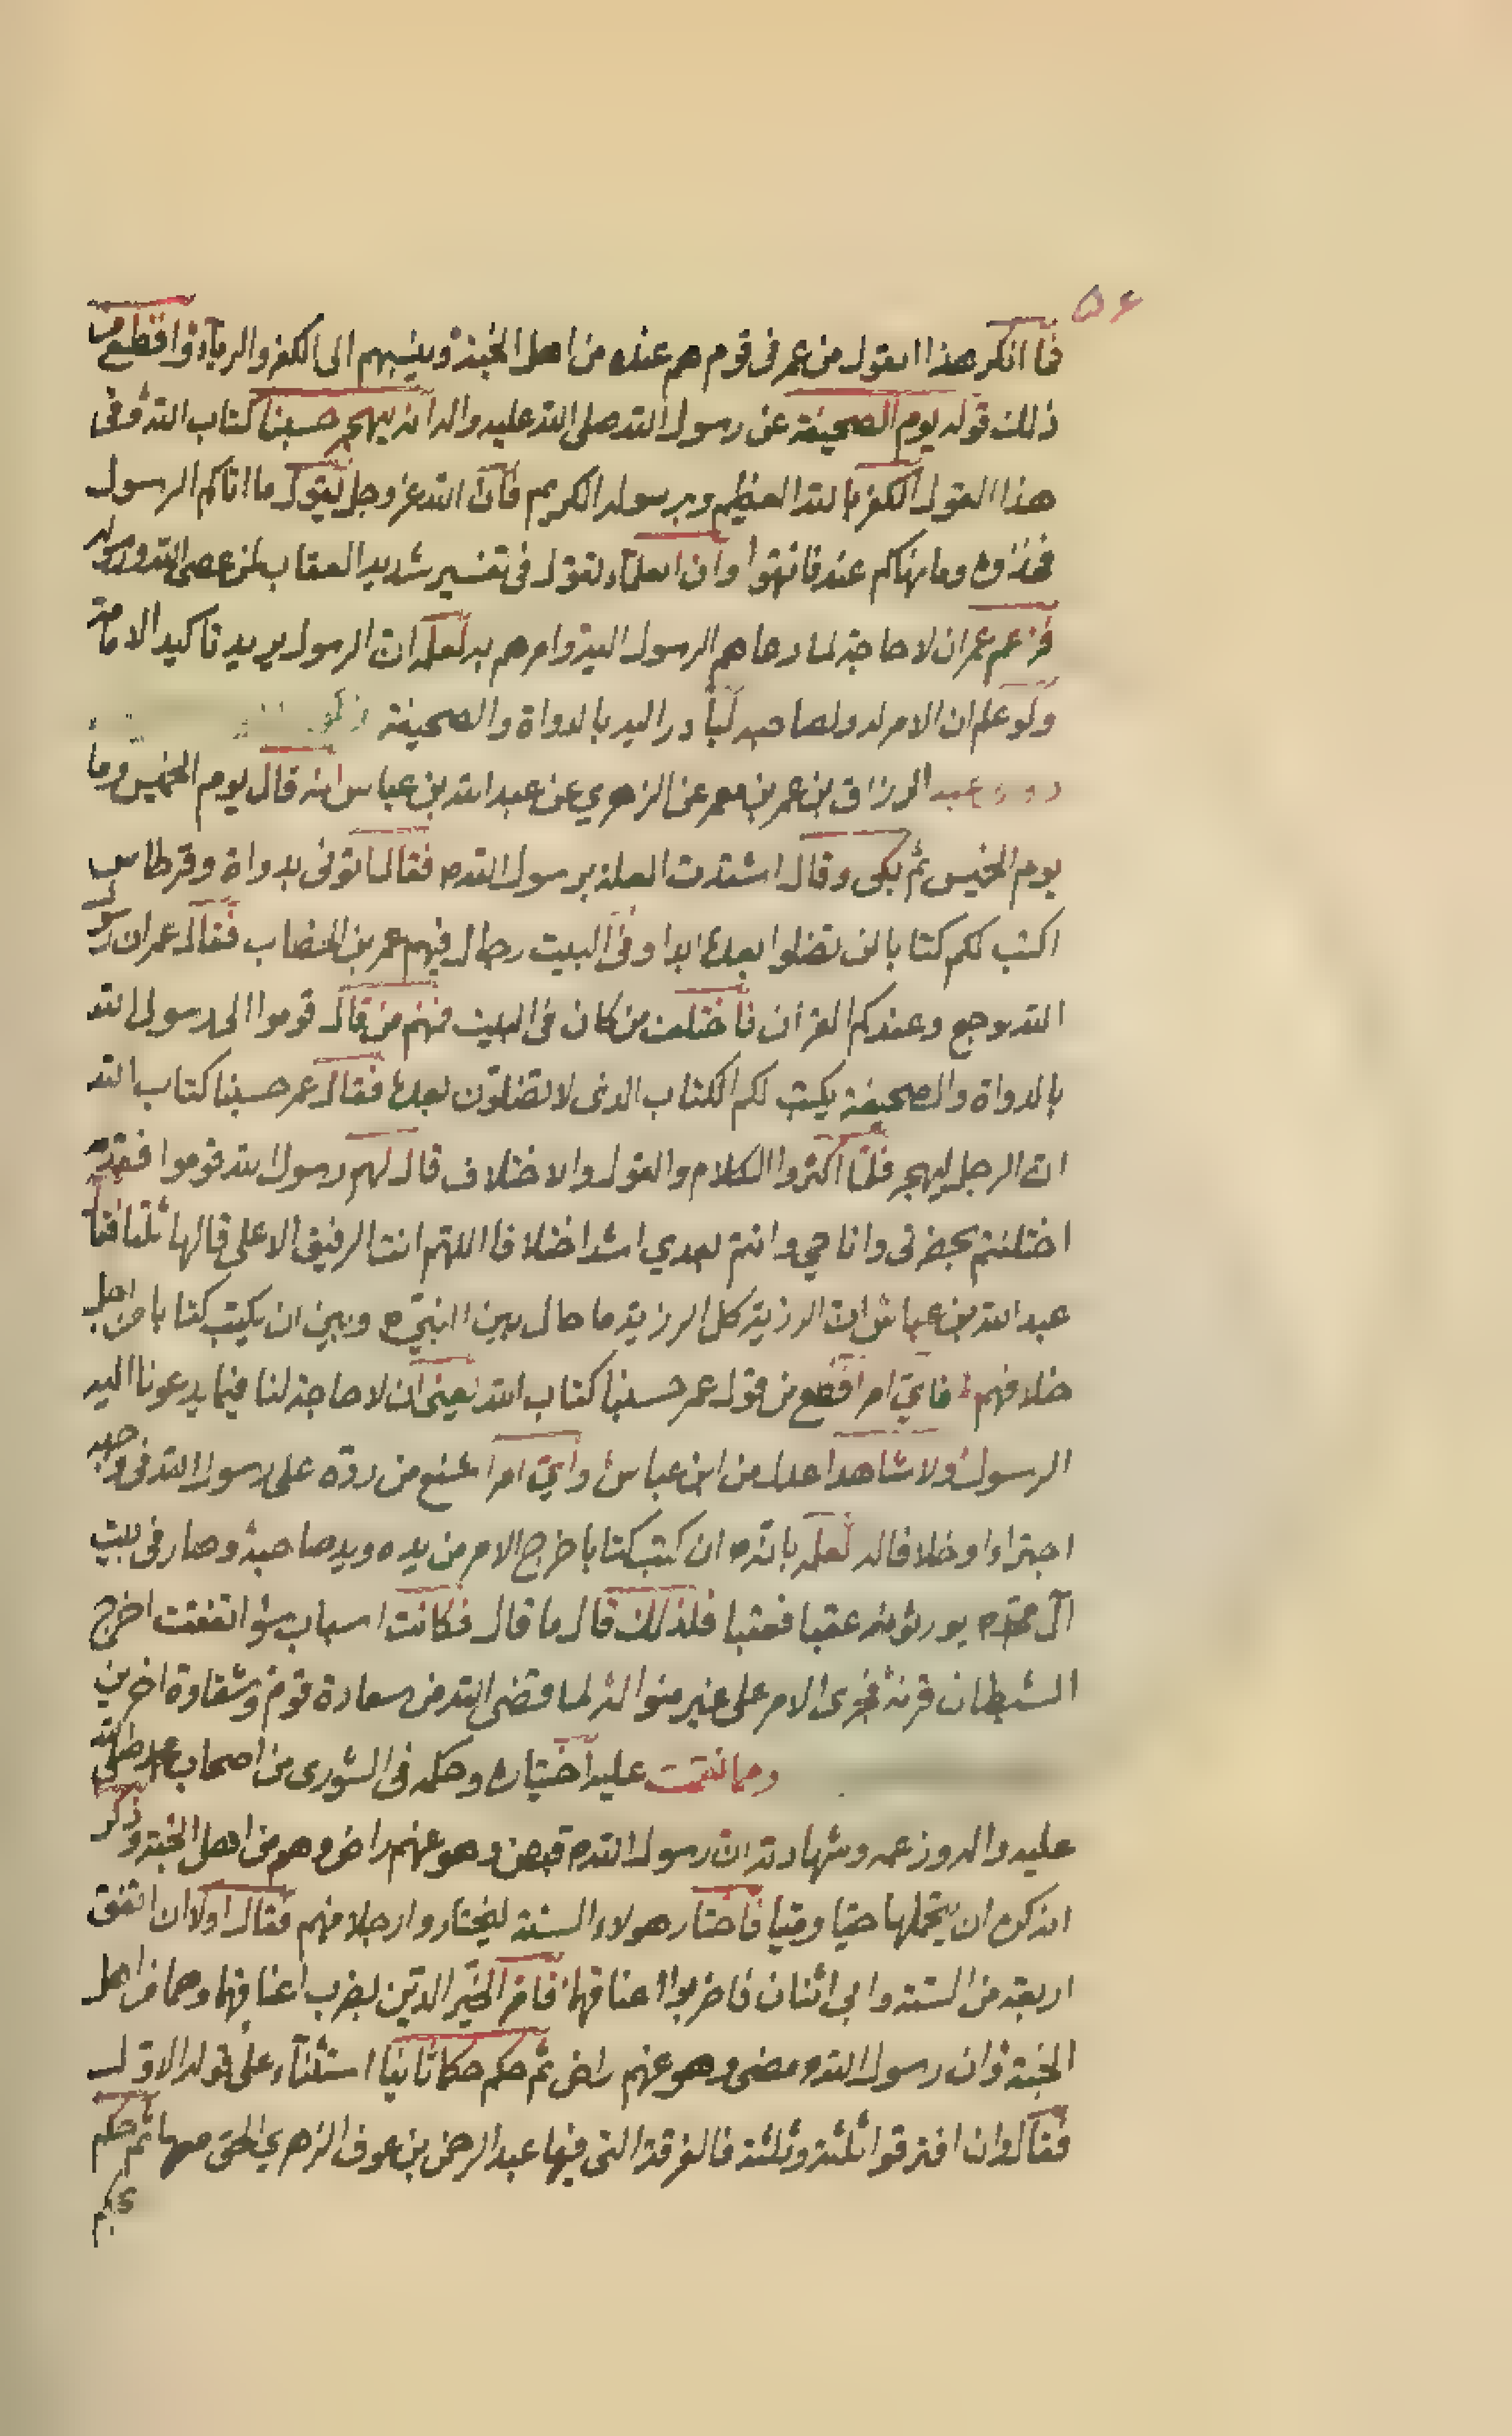 ۵۶
فما انكر هذا القول من عمر فى قوم هم عنده من اهل الجنة وينسبهم الى الكفر والردة وافظع من
ذلك قوله يوم الصحيفة عن رسول الله صلى الله عليه واله انه يهجر حسبنا كتاب الله وفى
هذا القول الكفر بالله العظيم وبرسوله الكريم فان الله عز وجل يقول ما اتاكم الرسول
فخذوه وما نهاكم عنه فانتهوا وان العلماء تقول فى تفسير شديد العقاب لمن عصى الله ورسوله
فزعم عمر ان لا حاجة لما دعاهم الرسول اليه وامرهم به لعلمه ان الرسول يريد تاكيد الامامة
ولو علم ان الامر له ولصاحبه لبادر اليه بالدواة والصحيفة
عبد الرزاق بن عمر بن معمر عن الزهري عن عبد الله بن عباس انه قال يوم الخميس وما
يوم الخميس ثم بكى وقال اشتدت العلة برسول الله ص فقال ايتونى بدواة وقرطاس
اكتب لكم كتابا لن تضلوا بعده ابدا وفى البيت رجال فيهم عمر بن الخطاب فقال عمر ان رسول
الله يوجع وعندكم القرآن فاختلف من كان فى البيت فمنهم من قال قوموا الى رسول الله
بالدواة والصحيفة يكتب لكم الكتاب الذى لا تضلون بعده فقال عمر حسبنا كتاب الله
ان الرجل ليهجر فلما اكثروا الكلام والقول والاختلاف قال لهم رسول الله قوموا فقد
اختلفتم بحضرتى وانا حي وانتم بعدي اشد اختلافا اللهم انت الرفيق الاعلى قالها ثلثا فقال
عبد الله بن عباس ان الرزية كل الرزية ما حال بين النبى ص وبين ان يكتب كتابا من اجل
خلافهم فاي امر افظع من قول عمر حسبنا كتاب الله يعنى ان لا حاجة لنا فيما يدعونا اليه
الرسول ولا شاهد اعدل من ابن عباس واي امر اشنع من رده على رسول الله فى وجهه
اجتراءا وخلافا له لعلمه بانه ص ان كتب كتابا خرج الامر من يده ويد صاحبه وصار فى بيت
آل محمد ص يورثونه عقبا فعقبا فلذلك قال ما قال فكانت اسباب سؤ اتفقت اخرج
الشيطان قرنه فجرى الامر على غير منواله لما قضى الله من سعادة قوم وشقاوة اخرين
ومما نقمت عليه اختياره وحكمه فى الشورى من اصحاب محمد صلى الله
عليه واله وزعمه وشهادته ان رسول الله ص قبض وهو عنهم راض وهم من اهل الجنة وذكر
انه كره ان يتحملها حيا وميتا فاختار هولاء الستة ليختاروا رجلا منهم فقال اولا ان اتفق
اربعة من الستة وابى اثنان فاضربوا اعناقهما فامر الخير الدين بضرب اعناقهما وهما من اهل
الجنة وان رسول الله ص مضى وهو عنهم راض ثم حكم حكما ثانيا استثناء على قوله الاول
فقال وان افترقوا ثلثة وثلثة فالفرقة التى فيها عبد الرحمن بن عوف الزهري الحق معها ثم حكم